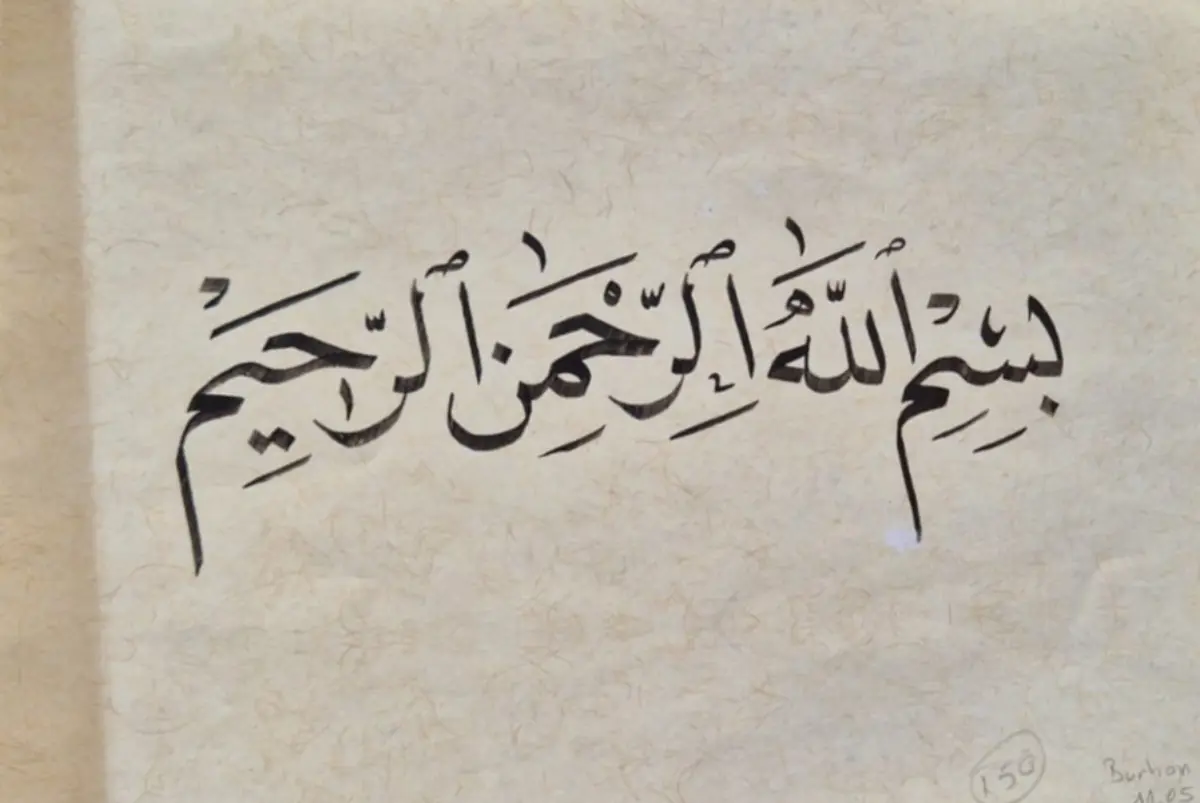 بِسْمِ ٱللَّٰهُ ٱلرَّحْمَٰنِ ٱلرَّحِيمْ
150
Burhan
11.05